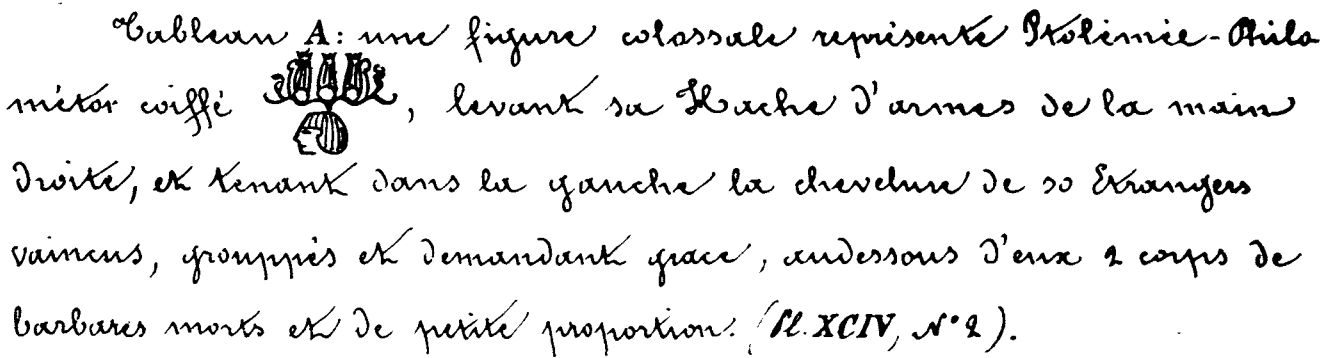 Tableau A: une figure colossale représente Ptolémée-Philo
métor coiffé , levant sa Hache d'armes de la main
droite, et tenant dans la gauche la chevelure de 30 Etrangers
vaincus, grouppés et demandant grace, audessous d'eux 2 corps de
barbares morts et de petite proportion. (Pl. XCIV, N° 2).